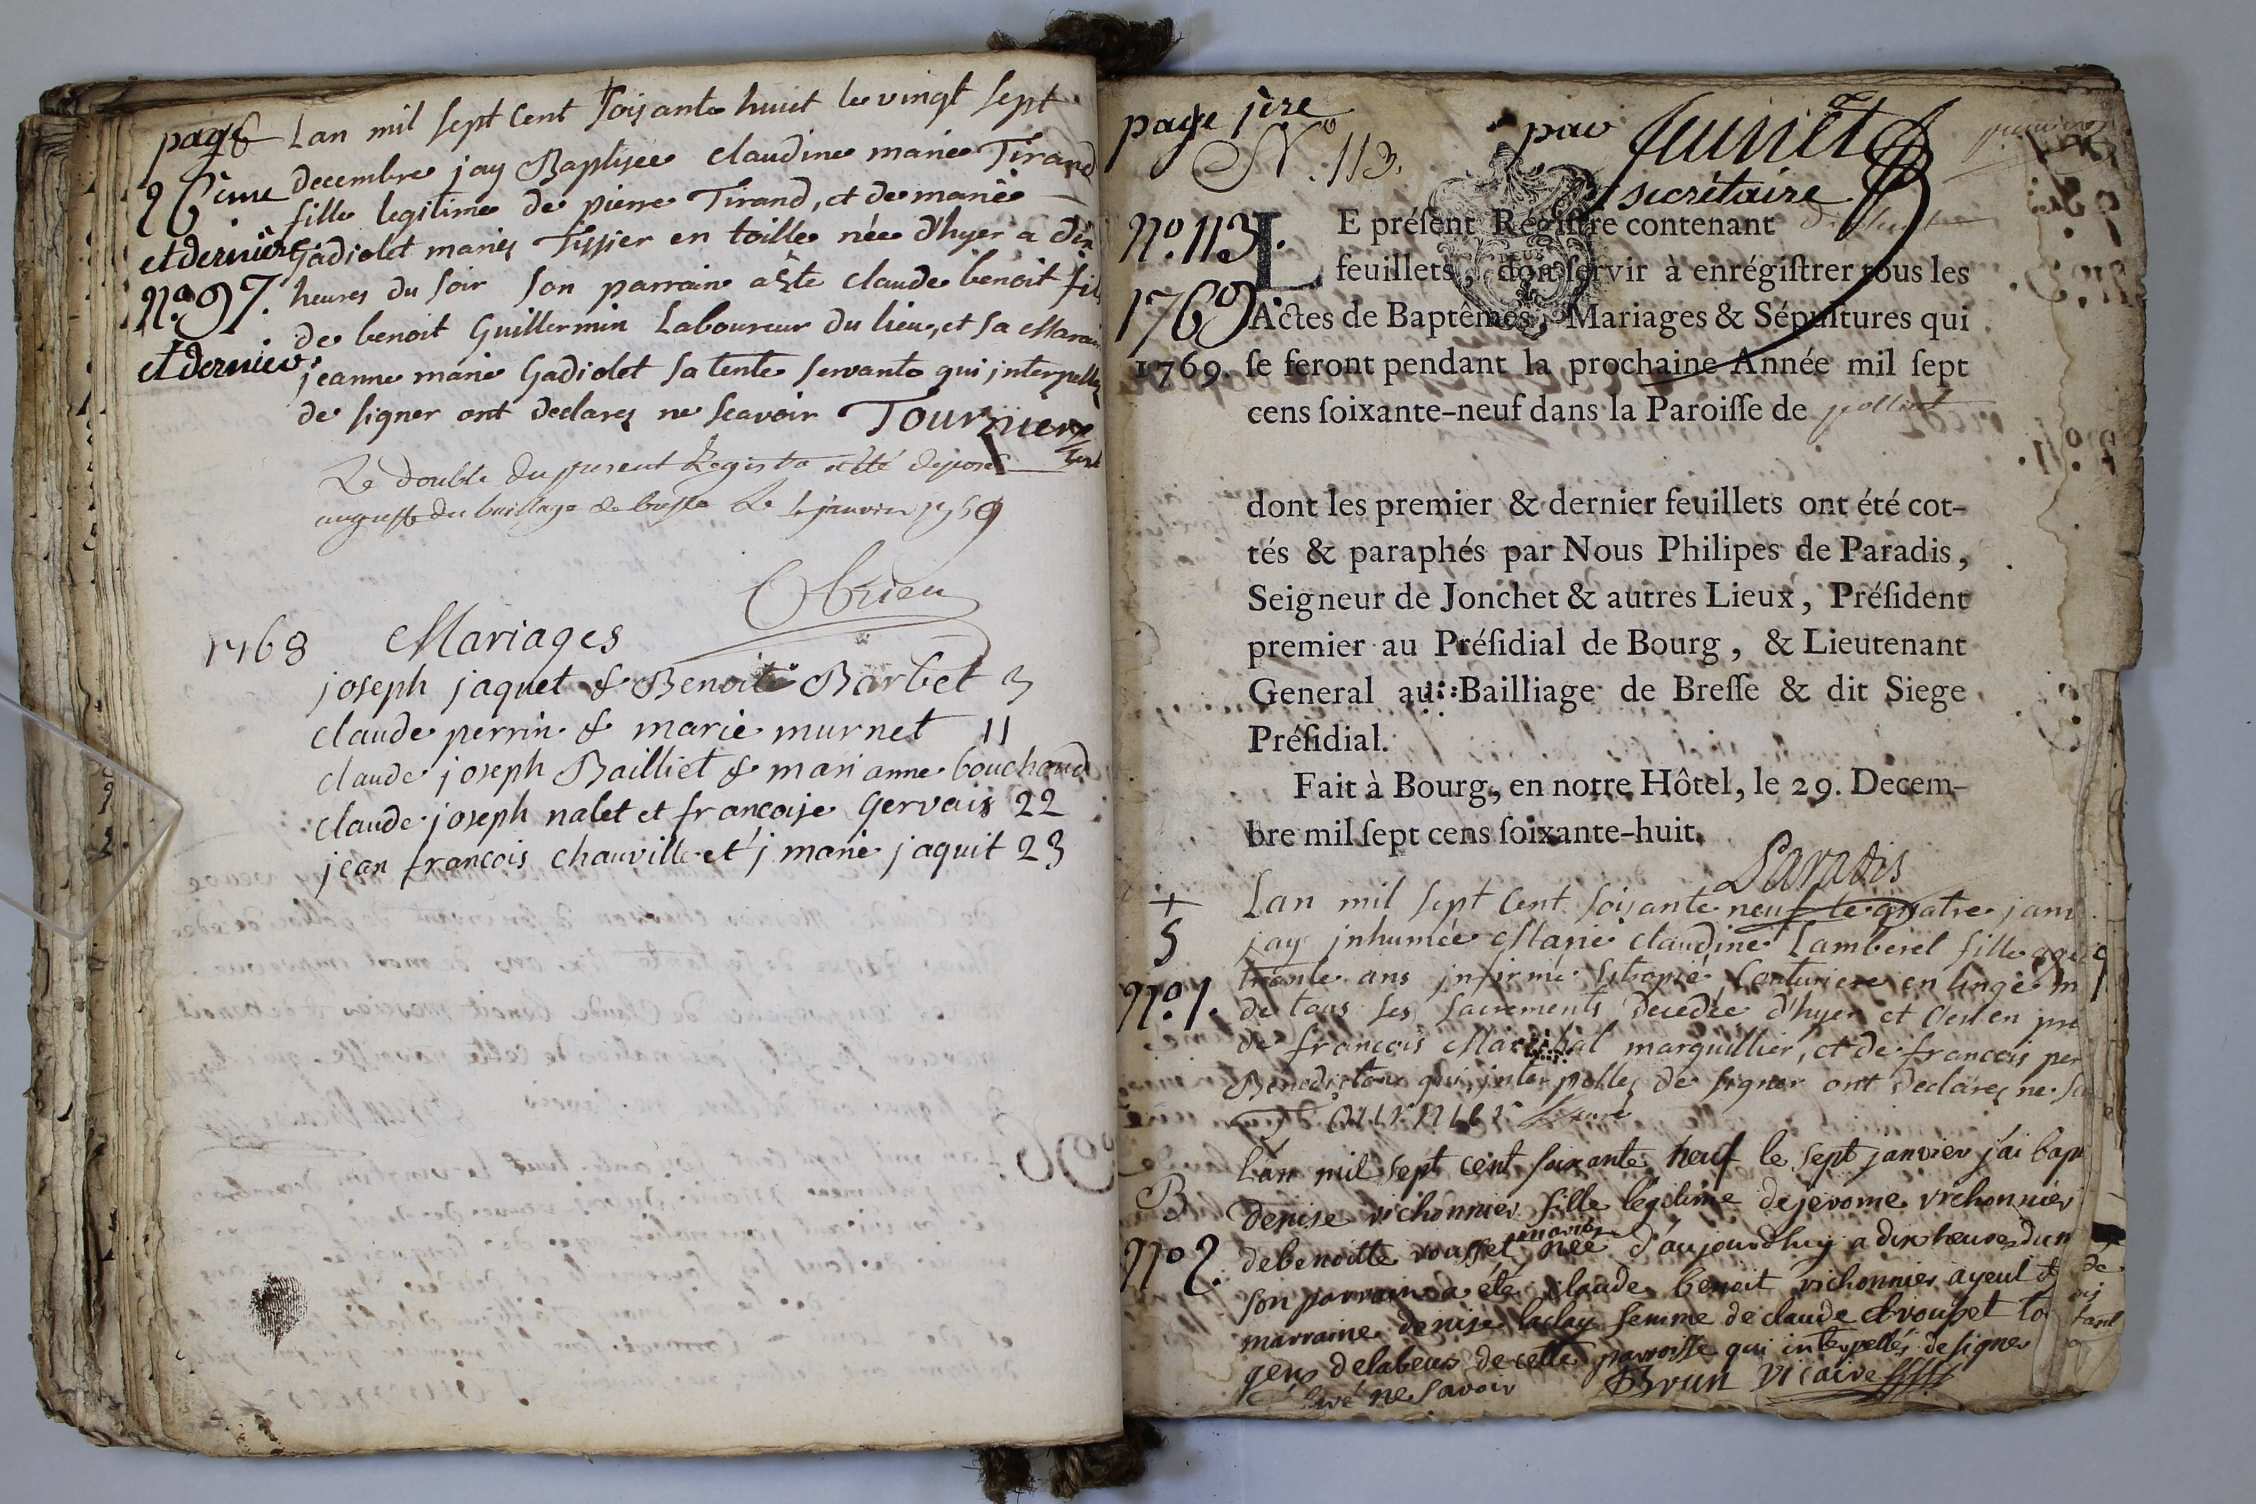 page
26ème
et dernière
No. 97.
et dernier
Lan mil sept cent soisante huit le vingt sept
decembre jay Baptisee claudine marie Tirand
fille legitime de pierre Tirand, et de marie
Gadiolet mariez Tissier en toille née d'hyer a dix
heures du soir son parrain a été claude benoit fils
de benoit Guillermin Laboureur du lieu, et sa Maraine
jeanne marie Gadiolet sa tente servante qui interpellez
de signer ont declarez ne scavoir Tournier
Le double du present Registre a été deposé
au greffe du baillage de bresse Le janvier 1769
1768 Mariages
joseph jaquet & Benoite Barbet 3
claude perrin & marie murnet 11
claude joseph Bailliet & marianne bouchard
claude joseph nalet et francoise Gervais 22
jean francois chauville et j marie jaquit 23
page 1ère
No. 113.
par
secrétaire
No. 113.
1769
1769.
LE préſent Régiſtre contenant
feuillets, doit ſervir à enrégiſtrer tous les
Actes de Baptêmes, Mariages & Sépultures qui
ſe feront pendant la prochaine Année mil ſept
cens ſoixante-neuf dans la Paroiſſe de polliat
dont les premier & dernier feuillets ont été cot-
tés & paraphés par Nous Philipes de Paradis,
Seigneur de Jonchet & autres Lieux, Préſident
premier au Préſidial de Bourg, & Lieutenant
General au Bailliage de Breſſe & dit Siege
Préſidial.
Fait à Bourg, en notre Hôtel, le 29. Decem-
bre mil ſept cens ſoixante-huit.
Paradis
+
S
No. 1.
Lan mil sept cent soisante neuf le quatre janv
jay inhumée Marie claudine Lamberel fille agée
trente ans infirme Estropié Couturiere en linge m
de tous ses sacrements decedée d'hyer et ce en pre
de francois Maréchal marguillier, et de francois per
Benediction qui interpellez de signer ont declarez ne sca
Tournier Curé
B
No 2.
Lan mil sept cent soixante neuf le sept janvier j'ai bapt
denise vichonnier fille légitime de jerome vichonnier
de benoitte rousset mariés née d'aujourdhuy a dix heures du m
son parrain a été claude benoit vichonnier ayeul et
marraine denise laclay femme de claude Brousset to
gens de labeur de cette parroisse qui interpellés de signer
ne savoir Brun vicaire